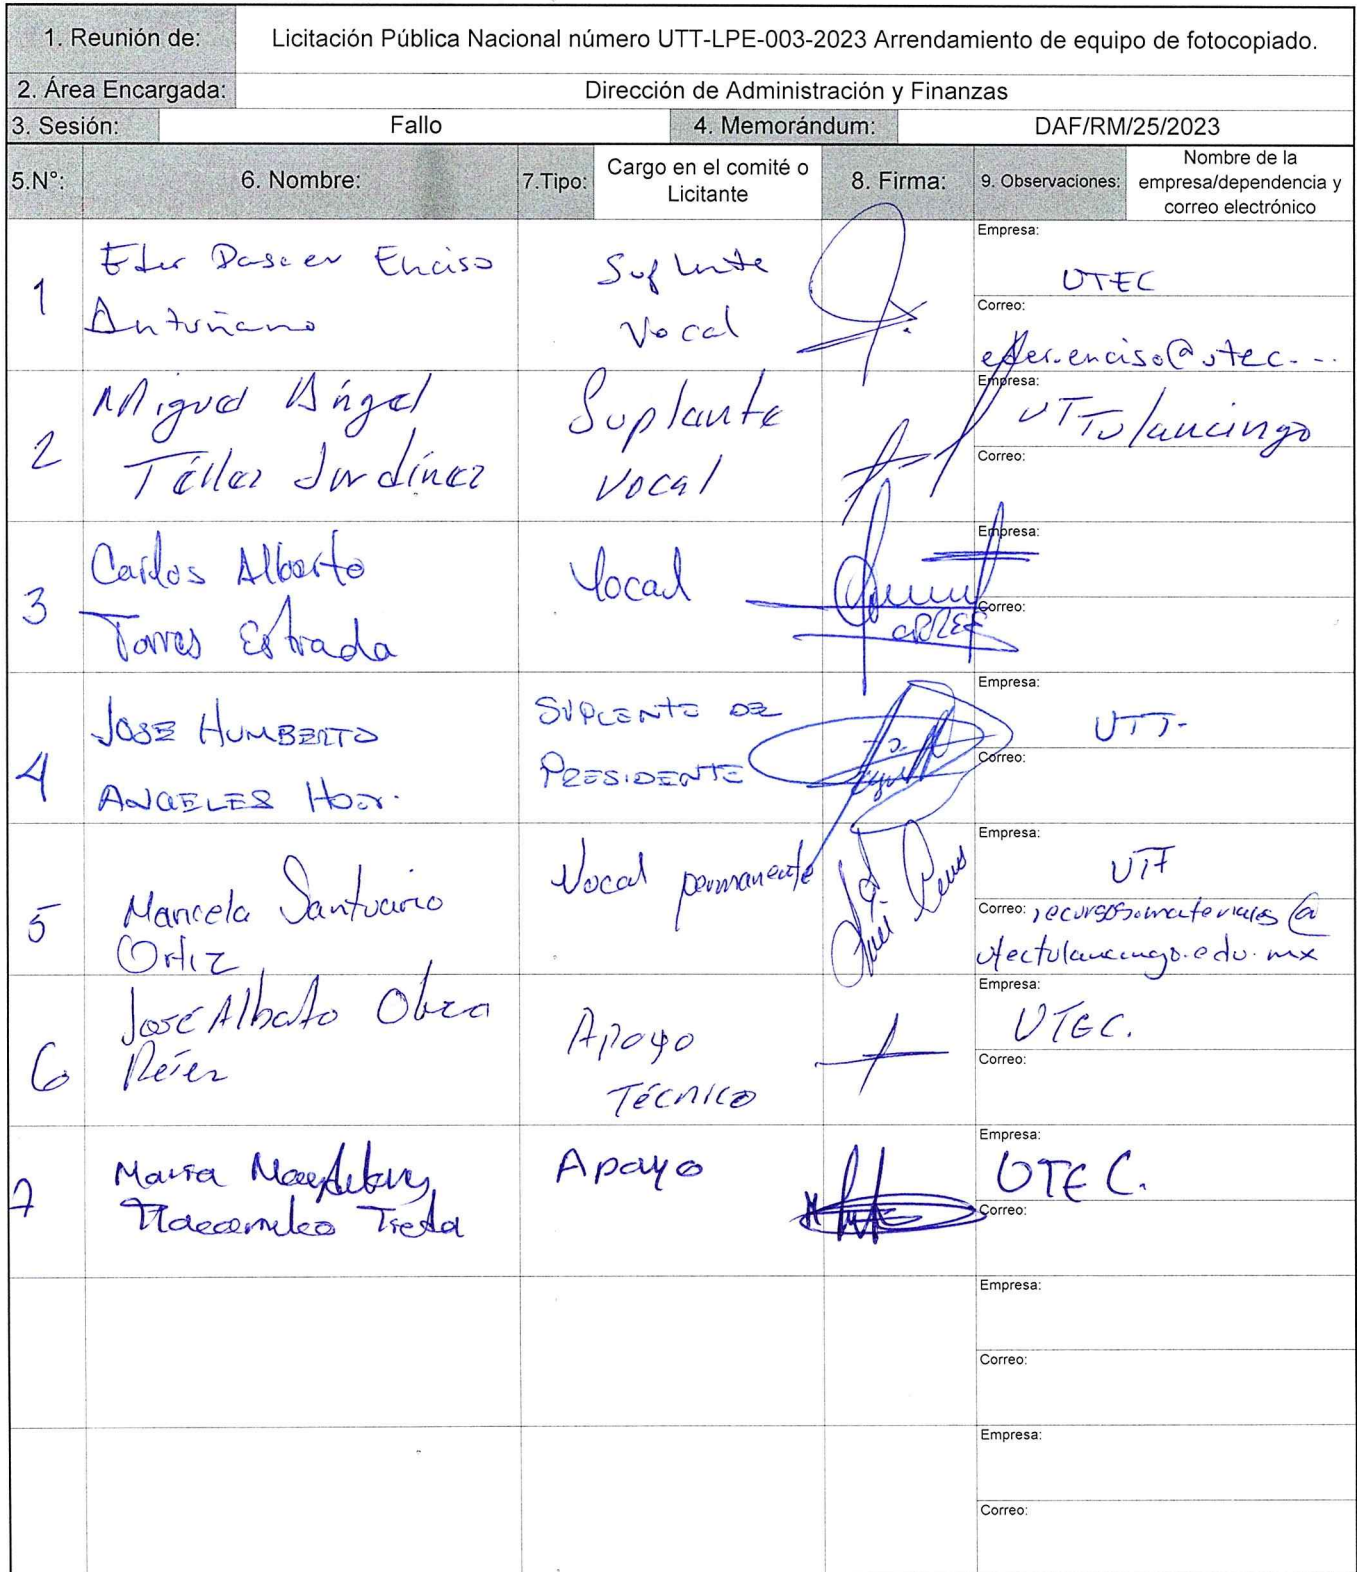 1. Reunión de: Licitación Pública Nacional número UTT-LPE-003-2023 Arrendamiento de equipo de fotocopiado.
2. Área Encargada: Dirección de Administración y Finanzas
3. Sesión: Fallo 4. Memorándum: DAF/RM/25/2023
5.N°: 6. Nombre: 7.Tipo: Cargo en el comité o Licitante 8. Firma: 9. Observaciones: Nombre de la empresa/dependencia y correo electrónico
1 Enciso Antuñano
Suplente Vocal
Empresa: UTEC
Correo: eder.enciso@utec...
2 Miguel Ángel
Téllez
Suplante
Vocal
Empresa: UTTulancingo
Correo:
3 Carlos Alberto
Torres Estrada
Vocal
Empresa:
Correo:
4 JOSE HUMBERTO
ANGELES
SUPLENTE DE
PRESIDENTE
Empresa: UTT-
Correo:
5 Marcela Santuario
Ortiz
Vocal permanente
Empresa: UTT
Correo: recursosmateriales@
utectulancingo.edu.mx
6 José Alberto
Apoyo
Técnico
Empresa: UTEC.
Correo:
7 Maria
Apoyo
Empresa: UTEC.
Correo:
Empresa:
Correo:
Empresa:
Correo: